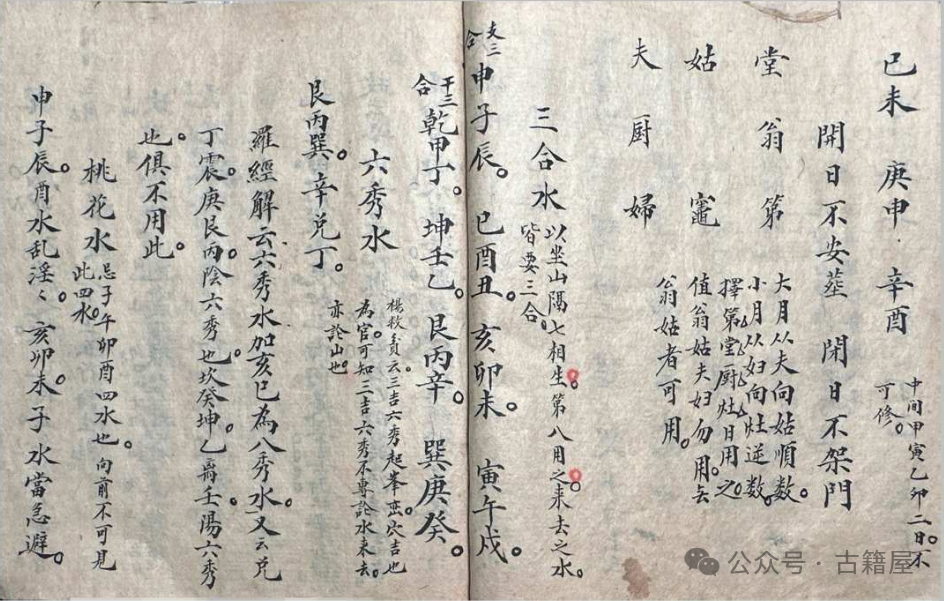 己未 庚申 辛酉 中间甲寅乙卯二日。不
可修。
開日不安葬 閉日不架門
堂 翁 第
大月从夫向姑順数。
小月从妇向灶逆数。
擇第堂厨灶日用之。
姑 竈
值翁姑夫妇勿用。云
翁姑者可用。
夫 厨 婦
三合水
以坐山隔七相生。第八用之来去之水。
皆要三合。
支三合
申子辰。 巳酉丑。 亥卯未。 寅午戍。
干三合
乾甲丁。 坤壬乙。 艮丙辛。 巽庚癸。
六秀水
楊救責云三吉六秀起峯峦穴吉也
為官。可知三吉六秀不專論水来去。
亦論山也。
艮丙巽。辛兑丁。
羅經解云六秀水加亥巳為八秀水。又云兑
丁震。庚艮。丙陰六秀也。坎癸坤。乙離壬。陽六秀
也。俱不用此。
桃花水
忌子午卯酉四水也。向前不可見
此四水。
申子辰。酉水乱淫〻。亥卯未。子水當急避。
公众号·古籍屋